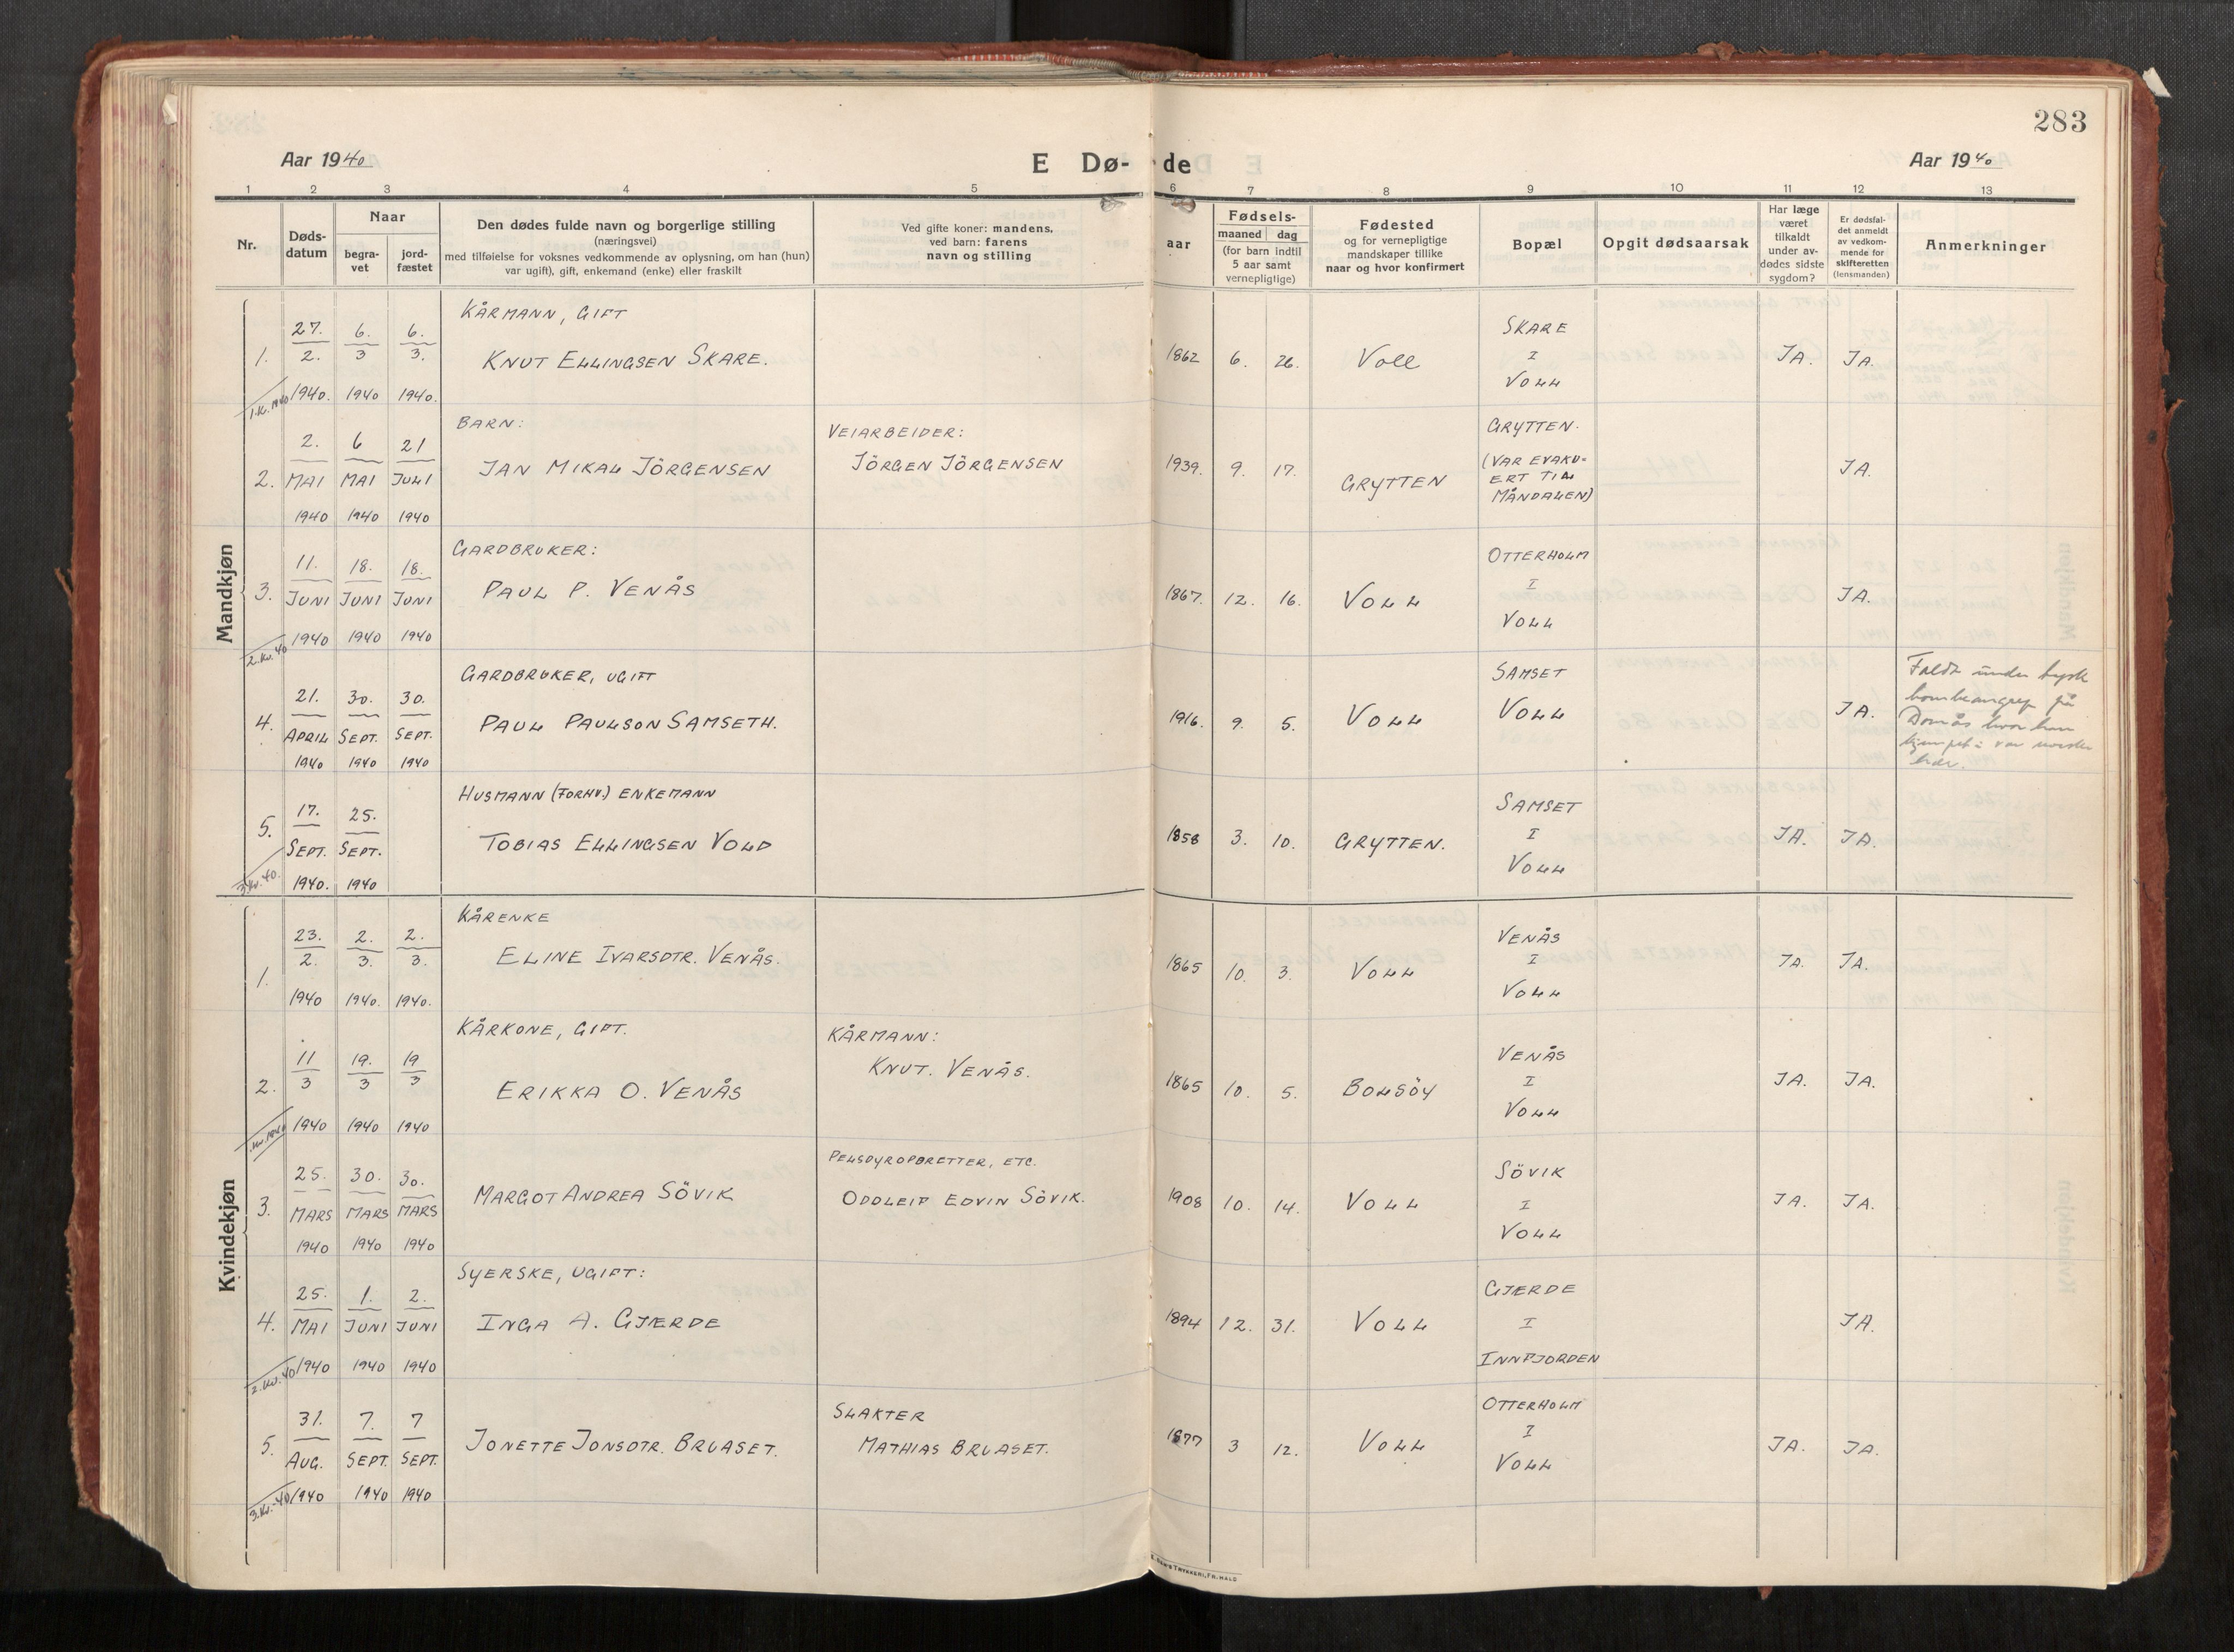 283
Aar 1940
E Dø- de
Aar 1940
1 2 3 4 5 6 7 8 9 10 11 12 13
Nr.
Døds-
datum
Naar
begra-
vet
jord-
fæstet
Den dødes fulde navn og borgerlige stilling
(næringsvei)
med tilføielse for voksnes vedkommende av oplysning, om han (hun)
var ugift), gift, enkemand (enke) eller fraskilt
Ved gifte koner: mandens,
ved barn: farens
navn og stilling
Fødsels-
aar
maaned dag
(for barn indtil
5 aar samt
vernepligtige)
Fødested
og for vernepligtige
mandskaper tillike
naar og hvor konfirmert
Bopæl
Opgit dødsaarsak
Har læge
været
tilkaldt
under av-
dødes sidste
sygdom?
Er dødsfal-
det anmeldt
av vedkom-
mende for
skifteretten
(lensmanden)
Anmerkninger
Mandkjøn
KÅRMANN, GIFT
SKARE
27. 6. 6.
1. 2. 3 3. KNUT ELLINGSEN SKARE. 1862 6. 26. Voll I JA. JA.
VOLL
1940. 1940 1940.
1.Kv. 1940
BARN:
VEIARBEIDER:
GRYTTEN.
2. 6 21
2. MAI MAI JULI JAN MIKAL JÖRGENSEN JÖRGEN JÖRGENSEN 1939. 9. 17. GRYTTEN (VAR EVAKU- JA.
ERT TIL
MÅNDALEN)
1940 1940 1940
GARDBRUKER:
OTTERHOLM
11. 18. 18.
3. JUNI JUNI JUNI PAUL P. VENÅS 1867. 12. 16. VOLL I JA.
VOLL
1940 1940 1940
2.Kv. 40
GARDBRUKER, UGIFT
SAMSET
21. 30. 30.
4. APRIL SEPT. SEPT. PAUL PAULSON SAMSETH. 1916. 9. 5. VOLL VOLL JA.
1940 1940 1940
Faldt under tysk
bombeangrep på
Domås hvor han
kjempet i vor norske
hær.
HUSMANN (FORHV.) ENKEMANN
SAMSET
17. 25.
5. SEPT. SEPT. TOBIAS ELLINGSEN VOLD 1858 3. 10. GRYTTEN. I JA. JA.
VOLL
1940. 1940
3.Kv. 40.
Kvindekjøn
KÅRENKE
VENÅS
23. 2. 2.
1. 2. 3. 3. ELINE IVARSDTR. VENÅS. 1865 10. 3. VOLL I JA. JA.
VOLL
1940 1940. 1940.
KÅRKONE, GIFT.
KÅRMANN:
VENÅS
11 19. 19
2. 3 3 3 ERIKKA O. VENÅS KNUT. VENÅS. 1865 10. 5. BOLSÖY I JA. JA.
VOLL
1940 1940 1940
PELSDYROPDRETTER, ETC.
SÖVIK
25. 30. 30.
3. MARS MARS MARS MARGOT ANDREA SÖVIK ODDLEIF EDVIN SÖVIK. 1908 10. 14. VOLL I JA. JA.
VOLL
1940 1940 1940
SYERSKE, UGIFT:
GJERDE
25. 1. 2.
4. MAI JUNI JUNI INGA A. GJERDE 1894 12. 31. VOLL I JA.
INNFJORDEN
1940 1940 1940
2.Kv. 40
SLAKTER
OTTERHOLM
31. 7. 7
5. AUG. SEPT. SEPT. JONETTE JONSDTR. BRUASET. MATHIAS BRUASET. 1877 3 12. VOLL I JA. JA.
VOLL
1940 1940 1940
3.Kv.-40